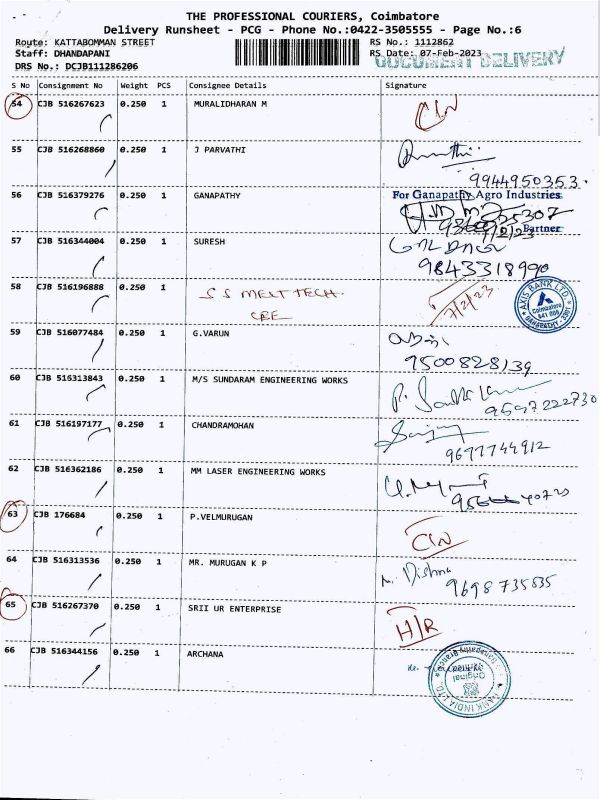 THE PROFESSIONAL COURIERS, Coimbatore
Delivery Runsheet - PCG - Phone No.:0422-3505555 - Page No.:6
Route: KATTABOMMAN STREET RS No.: 1112862
Staff: DHANDAPANI RS Date: 07-Feb-2023
DOCUMENT DELIVERY
DRS No.: DCJB111286206
S No Consignment No Weight PCS Consignee Details Signature
54 CJB 516267623 0.250 1 MURALIDHARAN M
55 CJB 516268860 0.250 1 J PARVATHI
9944950353
56 CJB 516379276 0.250 1 GANAPATHY For Ganapathy Agro Industries
Partner
57 CJB 516344004 0.250 1 SURESH
9843318990
58 CJB 516196888 0.250 1 S S MELT TECH 7/2/23 AXIS BANK LTD. Coimbatore
CBE
59 CJB 516077484 0.250 1 G.VARUN
9500828139
60 CJB 516313843 0.250 1 M/S SUNDARAM ENGINEERING WORKS
9597222730
61 CJB 516197177 0.250 1 CHANDRAMOHAN
9677744912
62 CJB 516362186 0.250 1 MM LASER ENGINEERING WORKS
63 CJB 176684 0.250 1 P.VELMURUGAN
64 CJB 516313536 0.250 1 MR. MURUGAN K P
65 CJB 516267370 0.250 1 SRII UR ENTERPRISE H/R
66 CJB 516344156 0.250 1 ARCHANA
Original